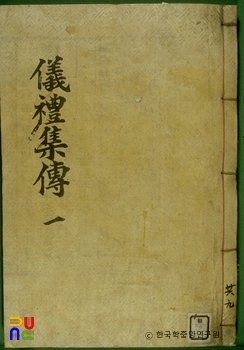 儀禮集傳 一
共九
© 한국학중앙연구원